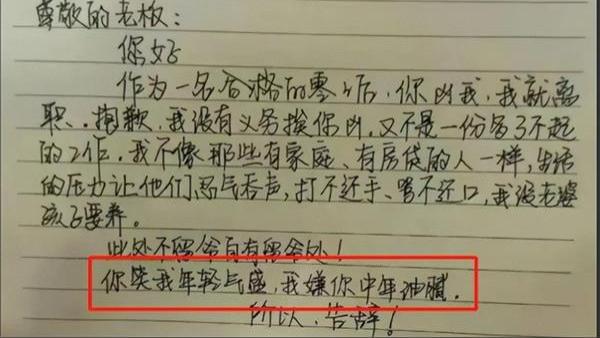 尊敬的老板：
您好
作为一名合格的零0后，你凶我，我就离
职、抱歉，我没有义务挨你凶，又不是一份多了不起
的工作，我不像那些有家庭、有房贷的人一样，生活
的压力让他们忍气吞声，打不还手、骂不还口，我没老婆
孩子要养。
此处不留爷自有留爷处！
你笑我年轻气盛，我嫌你中年油腻，
所以，告辞！